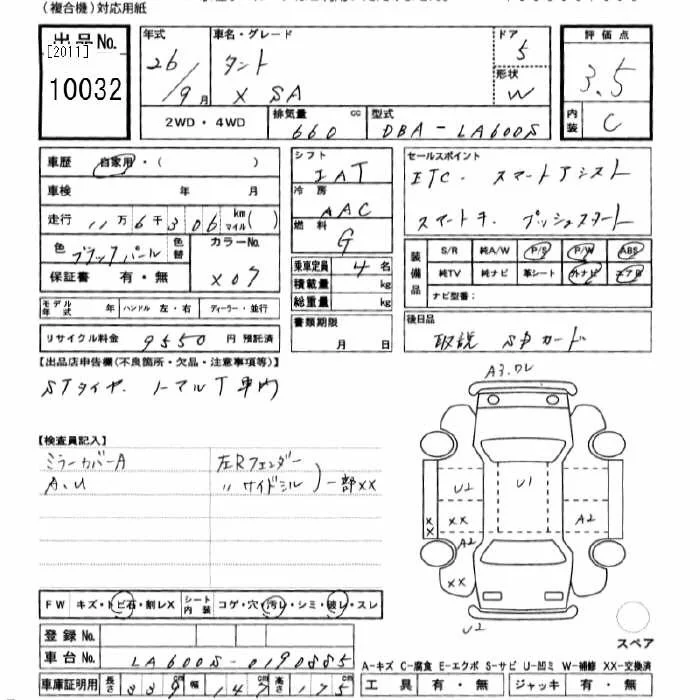 (複合機)対応用紙
出品No.
[2011]
10032
年式 26/9月
車名・グレード タント X SA
ドア 5
形状 W
評価点 3.5
内装 C
2WD・4WD
排気量 660 cc
型式 DBA-LA600S
車歴 自家用・( )
車検 年 月
走行 11万6千306 km マイル( )
色 ブラックパール 色替
カラーNo. X07
保証書 有・無
モデル年式 年 ハンドル 左・右 ディーラー・並行
リサイクル料金 9550 円 預託済
シフト IAT
冷房 AAC
燃料 G
乗車定員 4 名
積載量 kg
総重量 kg
書類期限 月 日
セールスポイント
ETC. スマートアシスト
スマートキー プッシュスタート
装備品
S/R 純A/W P/S P/W ABS
純TV 純ナビ 革シート 外ナビ エアB
ナビ型番:
後日品
取説 SDカード
【出品店申告欄(不良箇所・欠品・注意事項等)】
STタイヤ. ノーマルT車内
【検査員記入】
ミラーカバーA
A、U
左Rフェンダー
〃 サイドシル
)一部XX
A3.ワレ
U2
U1
XX
XX
A2
A2
XX
U2
スペア
FW キズ・トビ石・割レX シート内装 コゲ・穴・汚レ・シミ・破レ・スレ
登録No.
車台No. LA600S-0190885
車庫証明用 長さ 339 cm 幅 147 cm 高さ 175 cm
A-キズ C-腐食 E-エクボ S-サビ U-凹ミ W-補修 XX-交換済
工具 有・無 ジャッキ 有・無